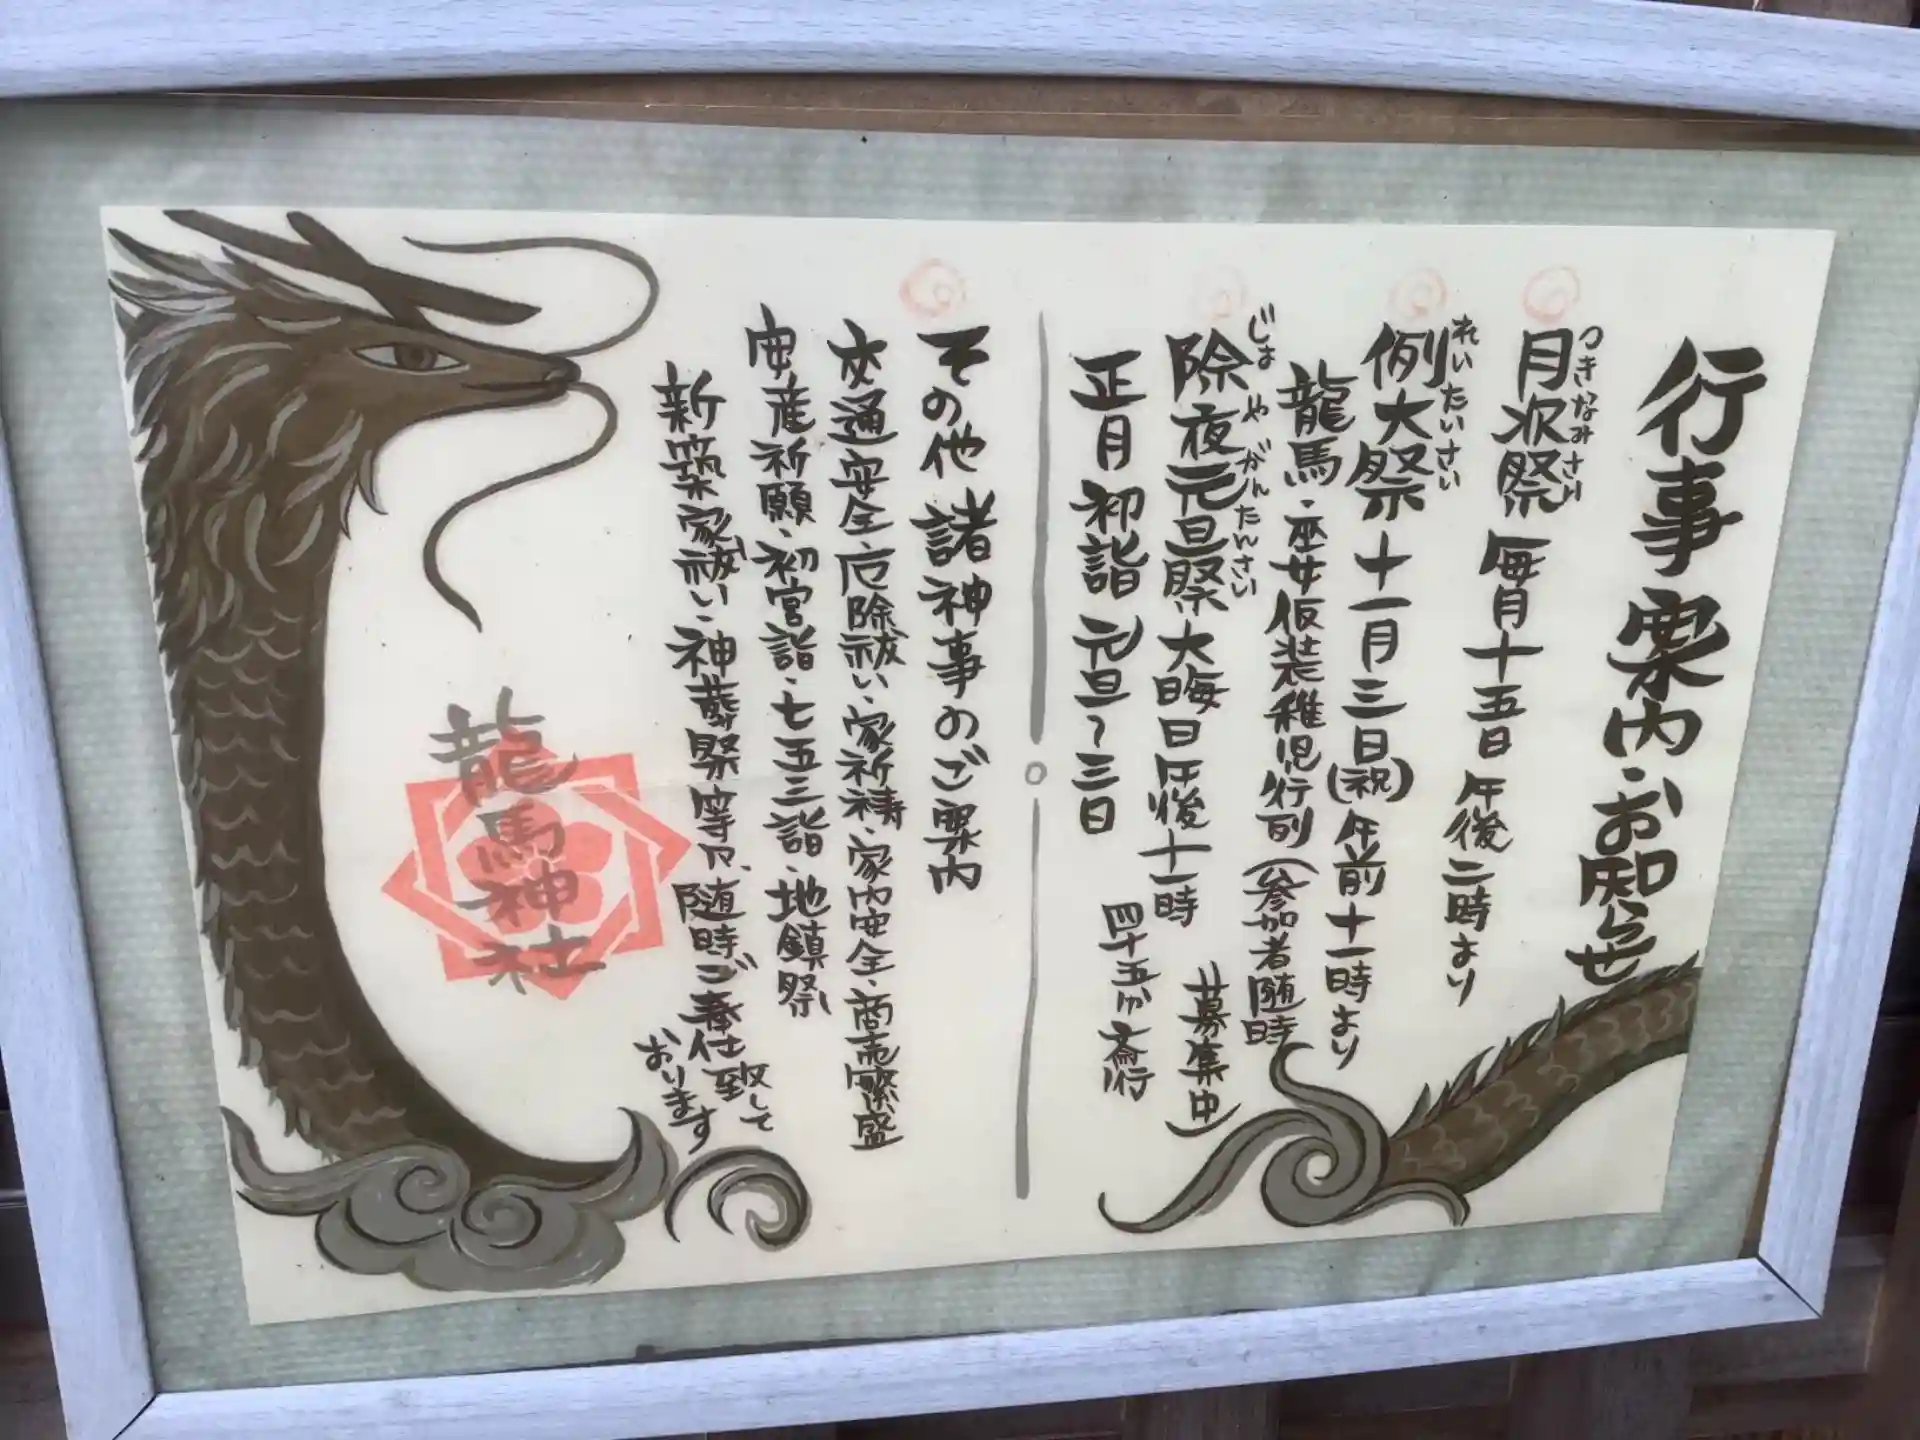 行事案内・お知らせ
月次祭 毎月十五日 午後二時より
つきなみさい
例大祭 十一月三日(祝)午前十一時より
れいたいさい
龍馬・巫女仮装稚児行列(参加者随時募集中)
除夜元旦祭 大晦日午後十一時四十五分斎行
じょやがんたんさい
正月初詣 元旦〜三日
その他諸神事のご案内
交通安全・厄除祓い・家祈祷・家内安全・商売繁盛
安産祈願・初宮詣・七五三詣・地鎮祭
新築家祓い・神葬祭等々、随時ご奉仕致して
おります
龍馬神社